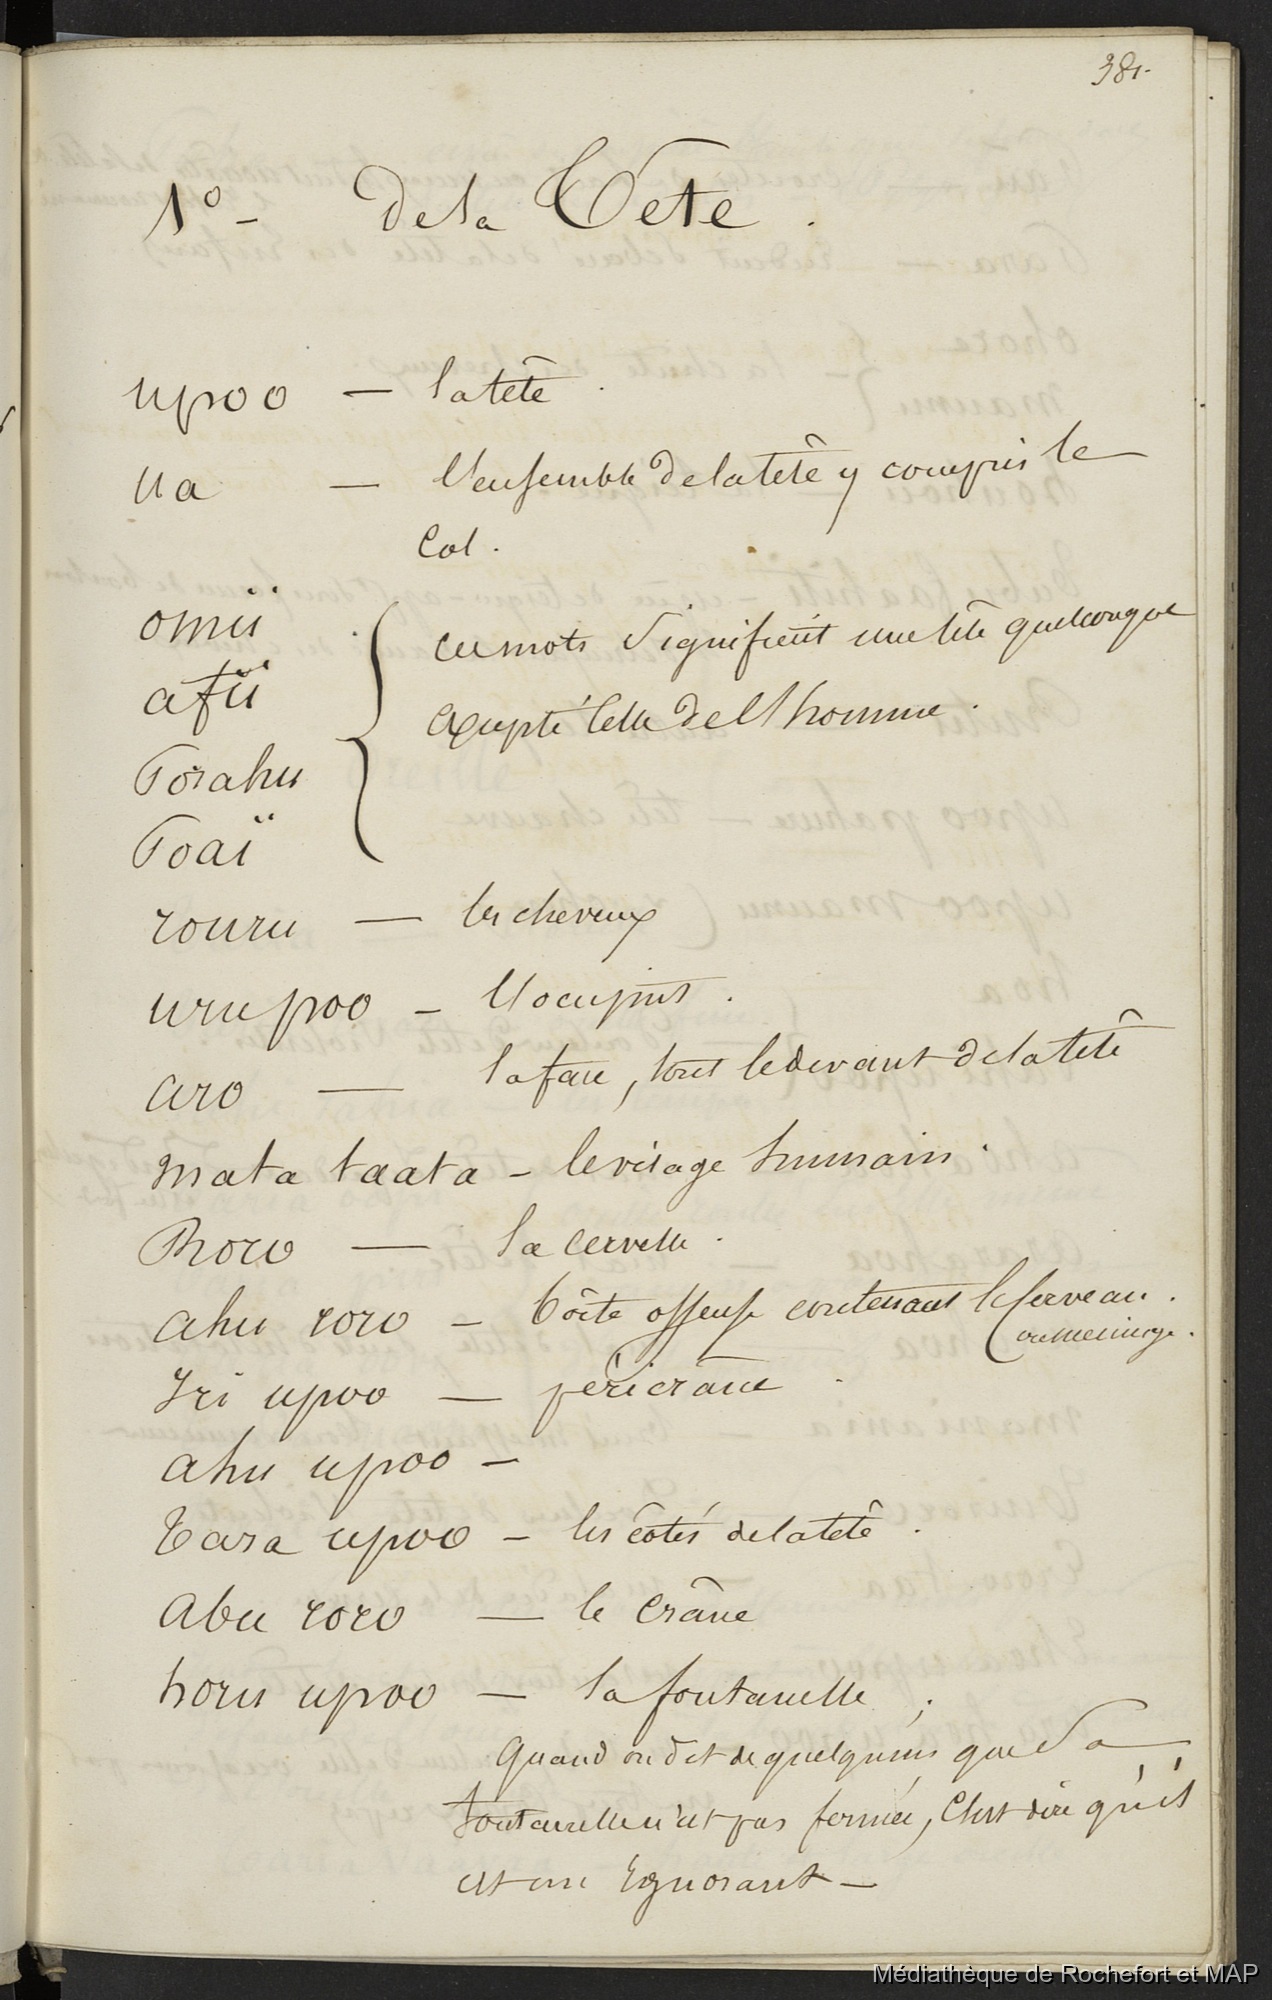 381.
1º - De la Tete.
upoo — la tête.
ua — l'ensemble de la tête y compris le
Col.
omii
afii
Torahu
Toaï
ces mots signifient une tête quelconque
excepté celle de l'homme.
rouru — les cheveux
urupoo - l'occiput.
aro — la face, tout le devant de la tête
mata taata - le visage humain.
Roro — la cervelle.
ahu roro - boîte osseuse contenant le cerveau.
ou meninge.
Iri upoo — péricrâne.
ahu upoo -
Tara upoo - les côtés de la tête.
Abu roro — le Crâne
horu upoo — la fontanelle;
Quand on dit de quelqu'uns que sa
fontanelle n'est pas fermée, C'est dire qu'il
est un Ignorant —
Médiathèque de Rochefort et MAP